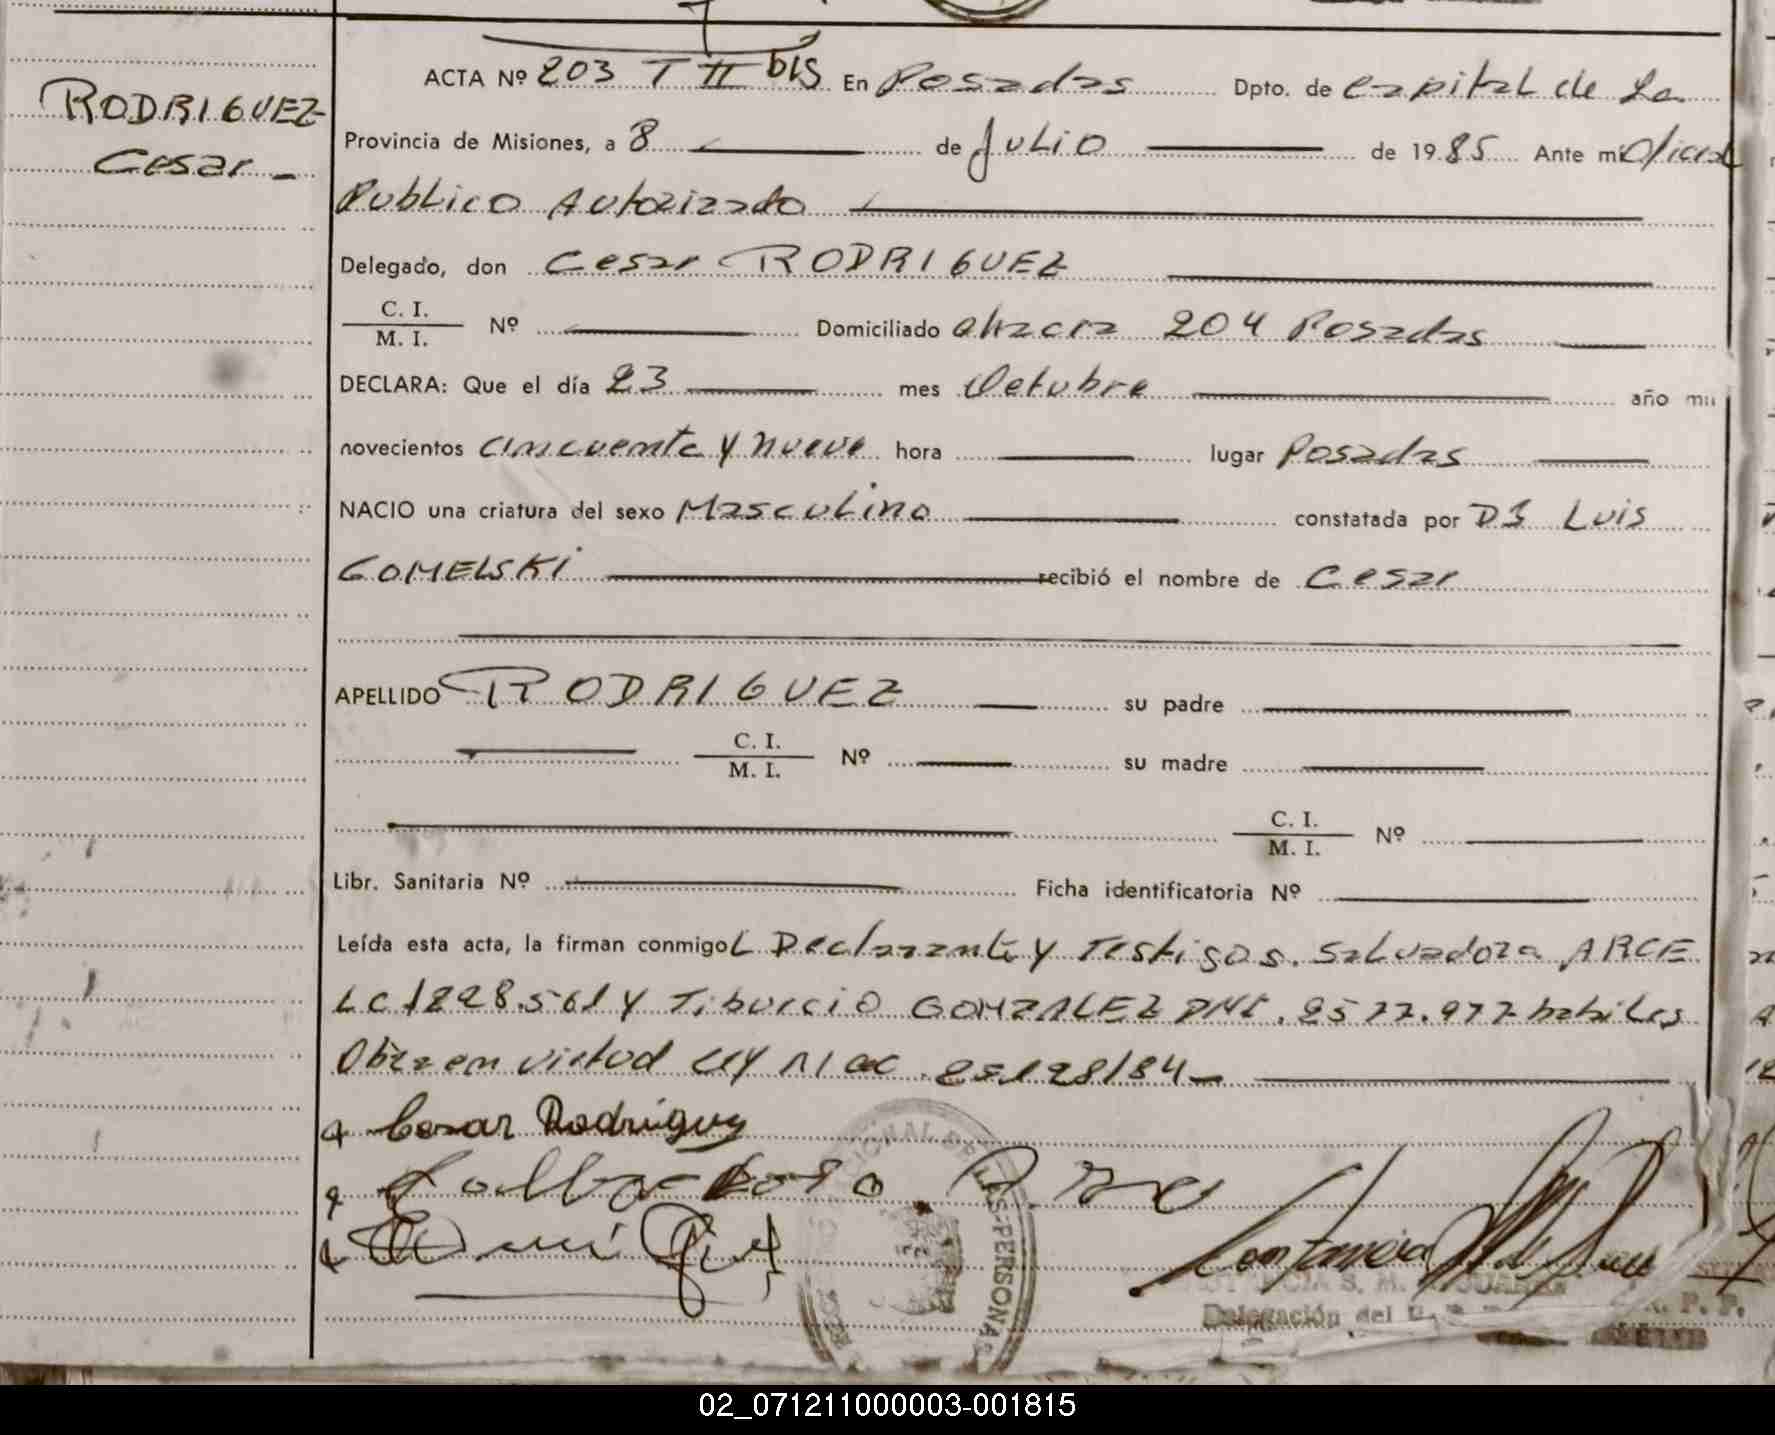 RODRIGUEZ
Cesar -
ACTA Nº 203 T II bis En Posadas Dpto. de Capital de La
Provincia de Misiones, a 8 de Julio de 1985 Ante mi Oficial
Publico Autorizado
Delegado, don Cesar RODRIGUEZ
C. I.
M. I. Nº Domiciliado 204 Posadas
DECLARA: Que el día 23 mes Octubre año mil
novecientos cincuenta y nueve hora lugar Posadas
NACIO una criatura del sexo Masculino constatada por Luis
GOMELSKI recibió el nombre de Cesar
APELLIDO RODRIGUEZ su padre
C. I.
M. I. Nº su madre
C. I.
M. I. Nº
Libr. Sanitaria Nº Ficha identificatoria Nº
Leída esta acta, la firman conmigo L Declarante y Testigos. Salvadora ARCE
LC 1228.561 y Tiburcio GONZALEZ DNI. 2577.977 habiles
Obra en virtud Ley 
Cesar Rodriguez
Delegación del
R. P. P.
02_071211000003-001815